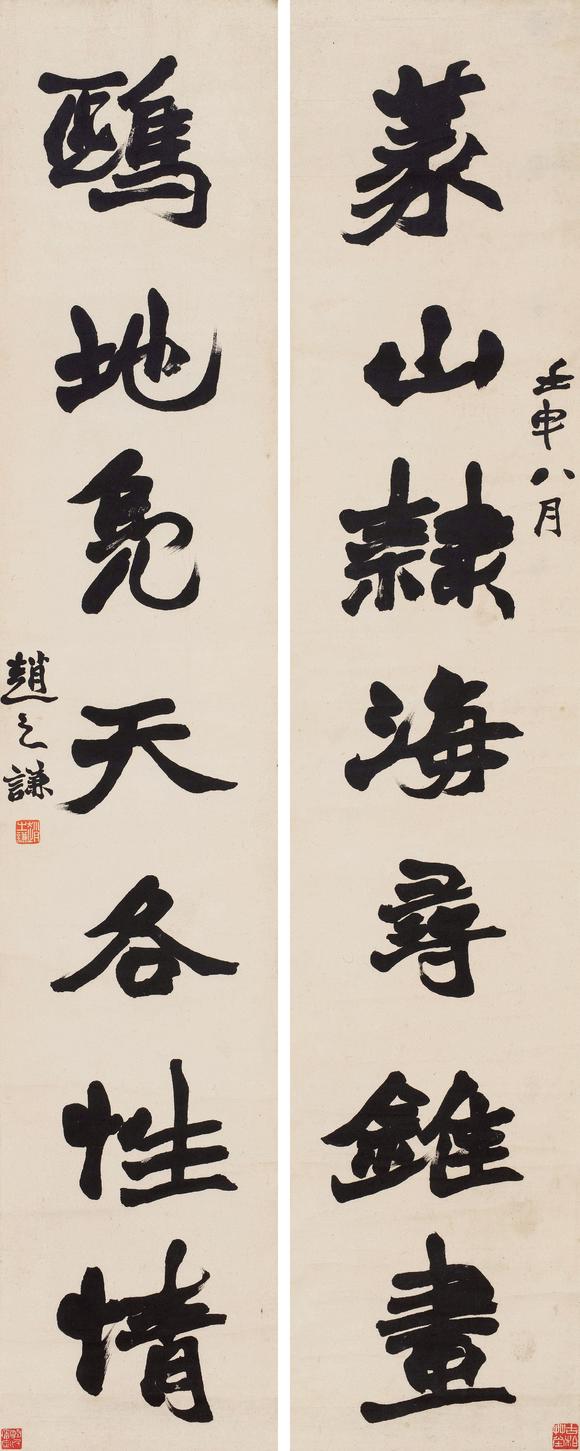 壬申八月
篆山隸海尋錐畫
鷗地鳧天各性情
趙之謙